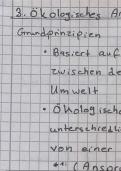 3. Ökologisches
Grundprinzipien
• Basiert auf
zwischen
Umwelt
• Ökologisch
unterschiedli
von einer
(Anspr